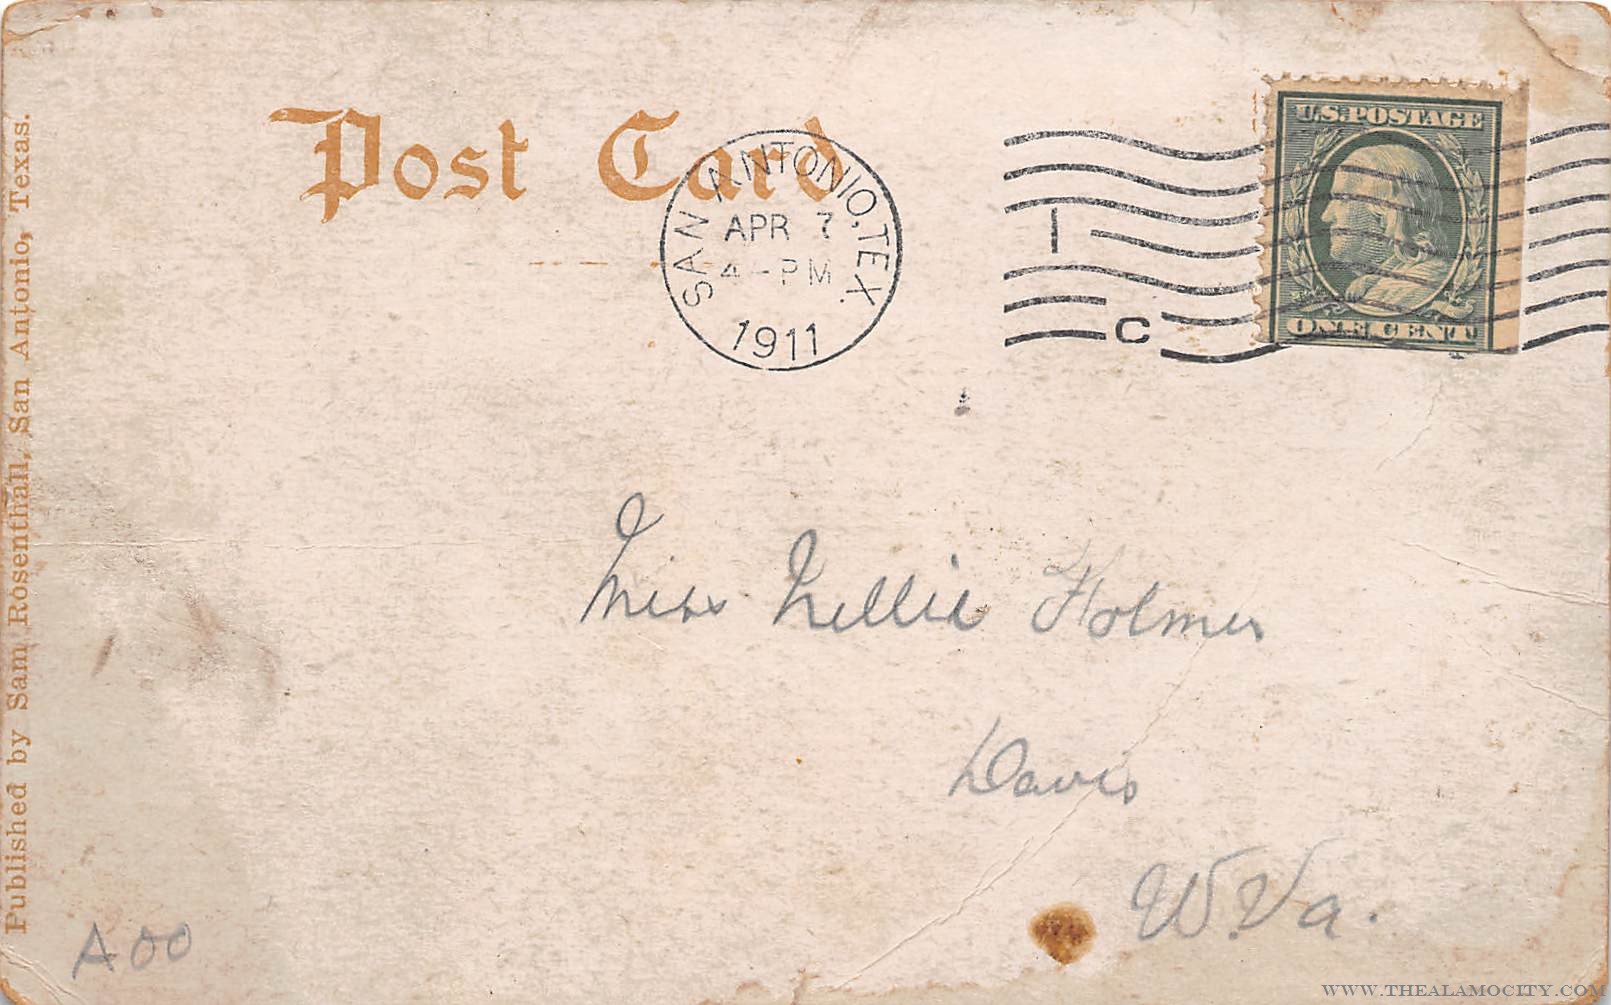 Post Card
SAN ANTONIO, TEX.
APR 7
4 - PM
1911
1
C
U.S. POSTAGE
ONE CENT
Published by Sam Rosenthall, San Antonio, Texas.
Miss Nellie Holmes
Davis
W. Va.
A00
WWW.THEALAMOCITY.COM